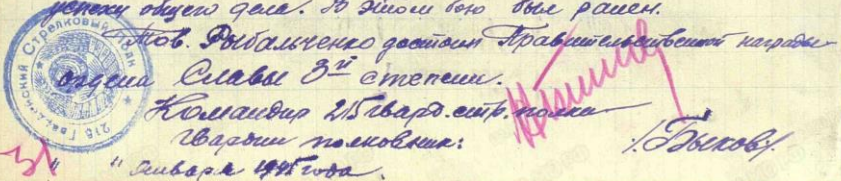 успеху общего дела. В этом бою был ранен.
Тов. Рыбальченко достоин Правительственной награды
ордена Славы 3й степени.
Командир 215 гвард. стр. полка
гвардии полковник: /Быков/.
31 " января 1945 года.
215 Гвардейский Стрелковый Полк